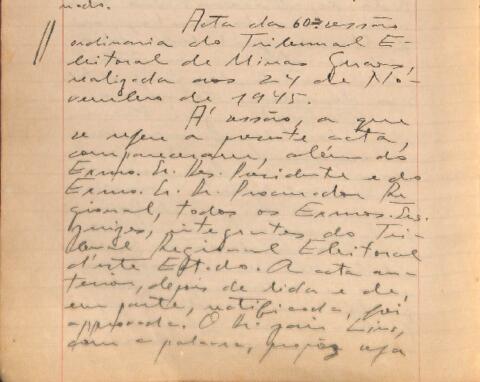 nado.
Acta da 60ª sessão
ordinaria do Tribunal E-
leitoral de Minas Geraes,
realizada aos 24 de No-
vembro de 1945.
Á sessão, a que
se refere a presente acta,
compareceram, além do
Exmo. Sr. Des. Presidente e do
Exmo. Sr. Dr. Procurador Re-
gional, todos os Exmos. Srs.
Juizes, integrantes do Tri-
bunal Regional Eleitoral
d'este Estado. A acta an-
terior, depois de lida e de,
em parte, rectificada, foi
approvada. O Dr. Jair Lins,
com a palavra, propõe seja